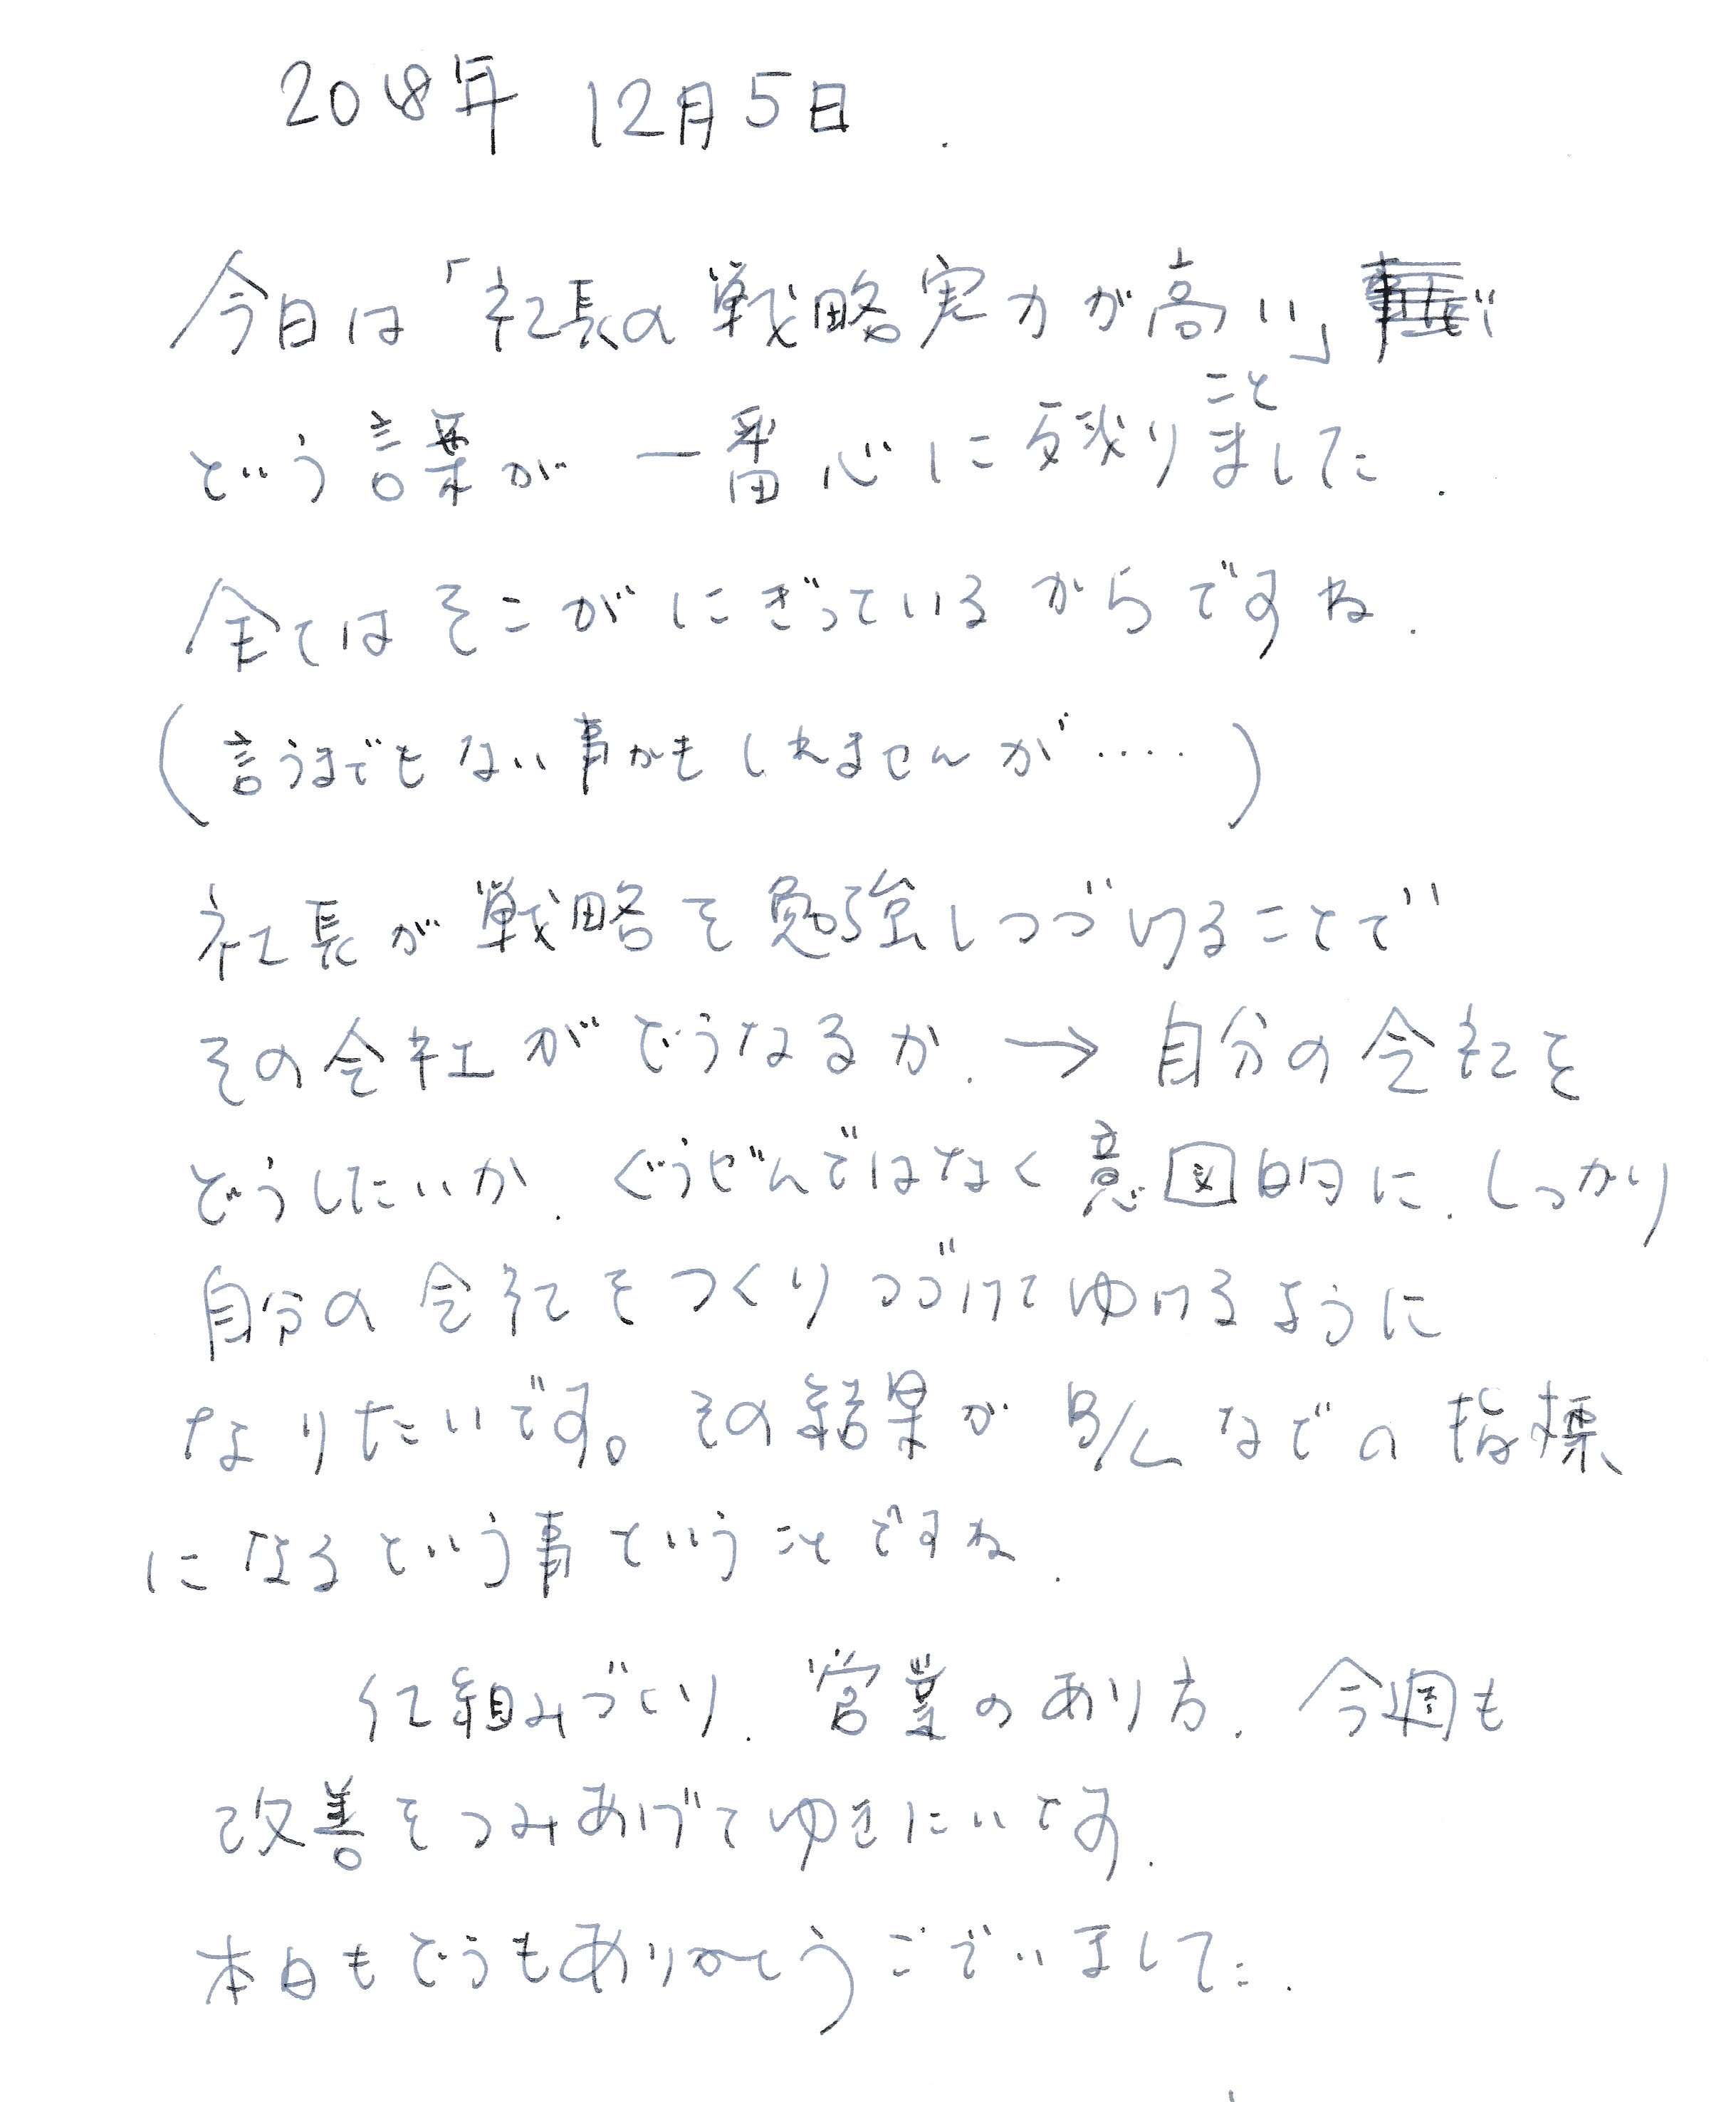 2018年 12月5日.
今日は「社長の戦略実力が高い」
こと
という言葉が一番心に残りました.
全てはそこがにぎっているからですね.
(言うまでもない事かもしれませんが‥‥)
社長が戦略を勉強しつづけることで
その会社がどうなるか. → 自分の会社を
どうしたいか. ぐうぜんではなく意図的に. しっかり
自分の会社をつくりつづけてゆけるように
なりたいです。その結果がB/Lなどの指標
になるという事ということですね.
仕組みづくり. 営業のあり方. 今週も
改善をつみあげてゆきたいです.
本日もどうもありがとうございました.